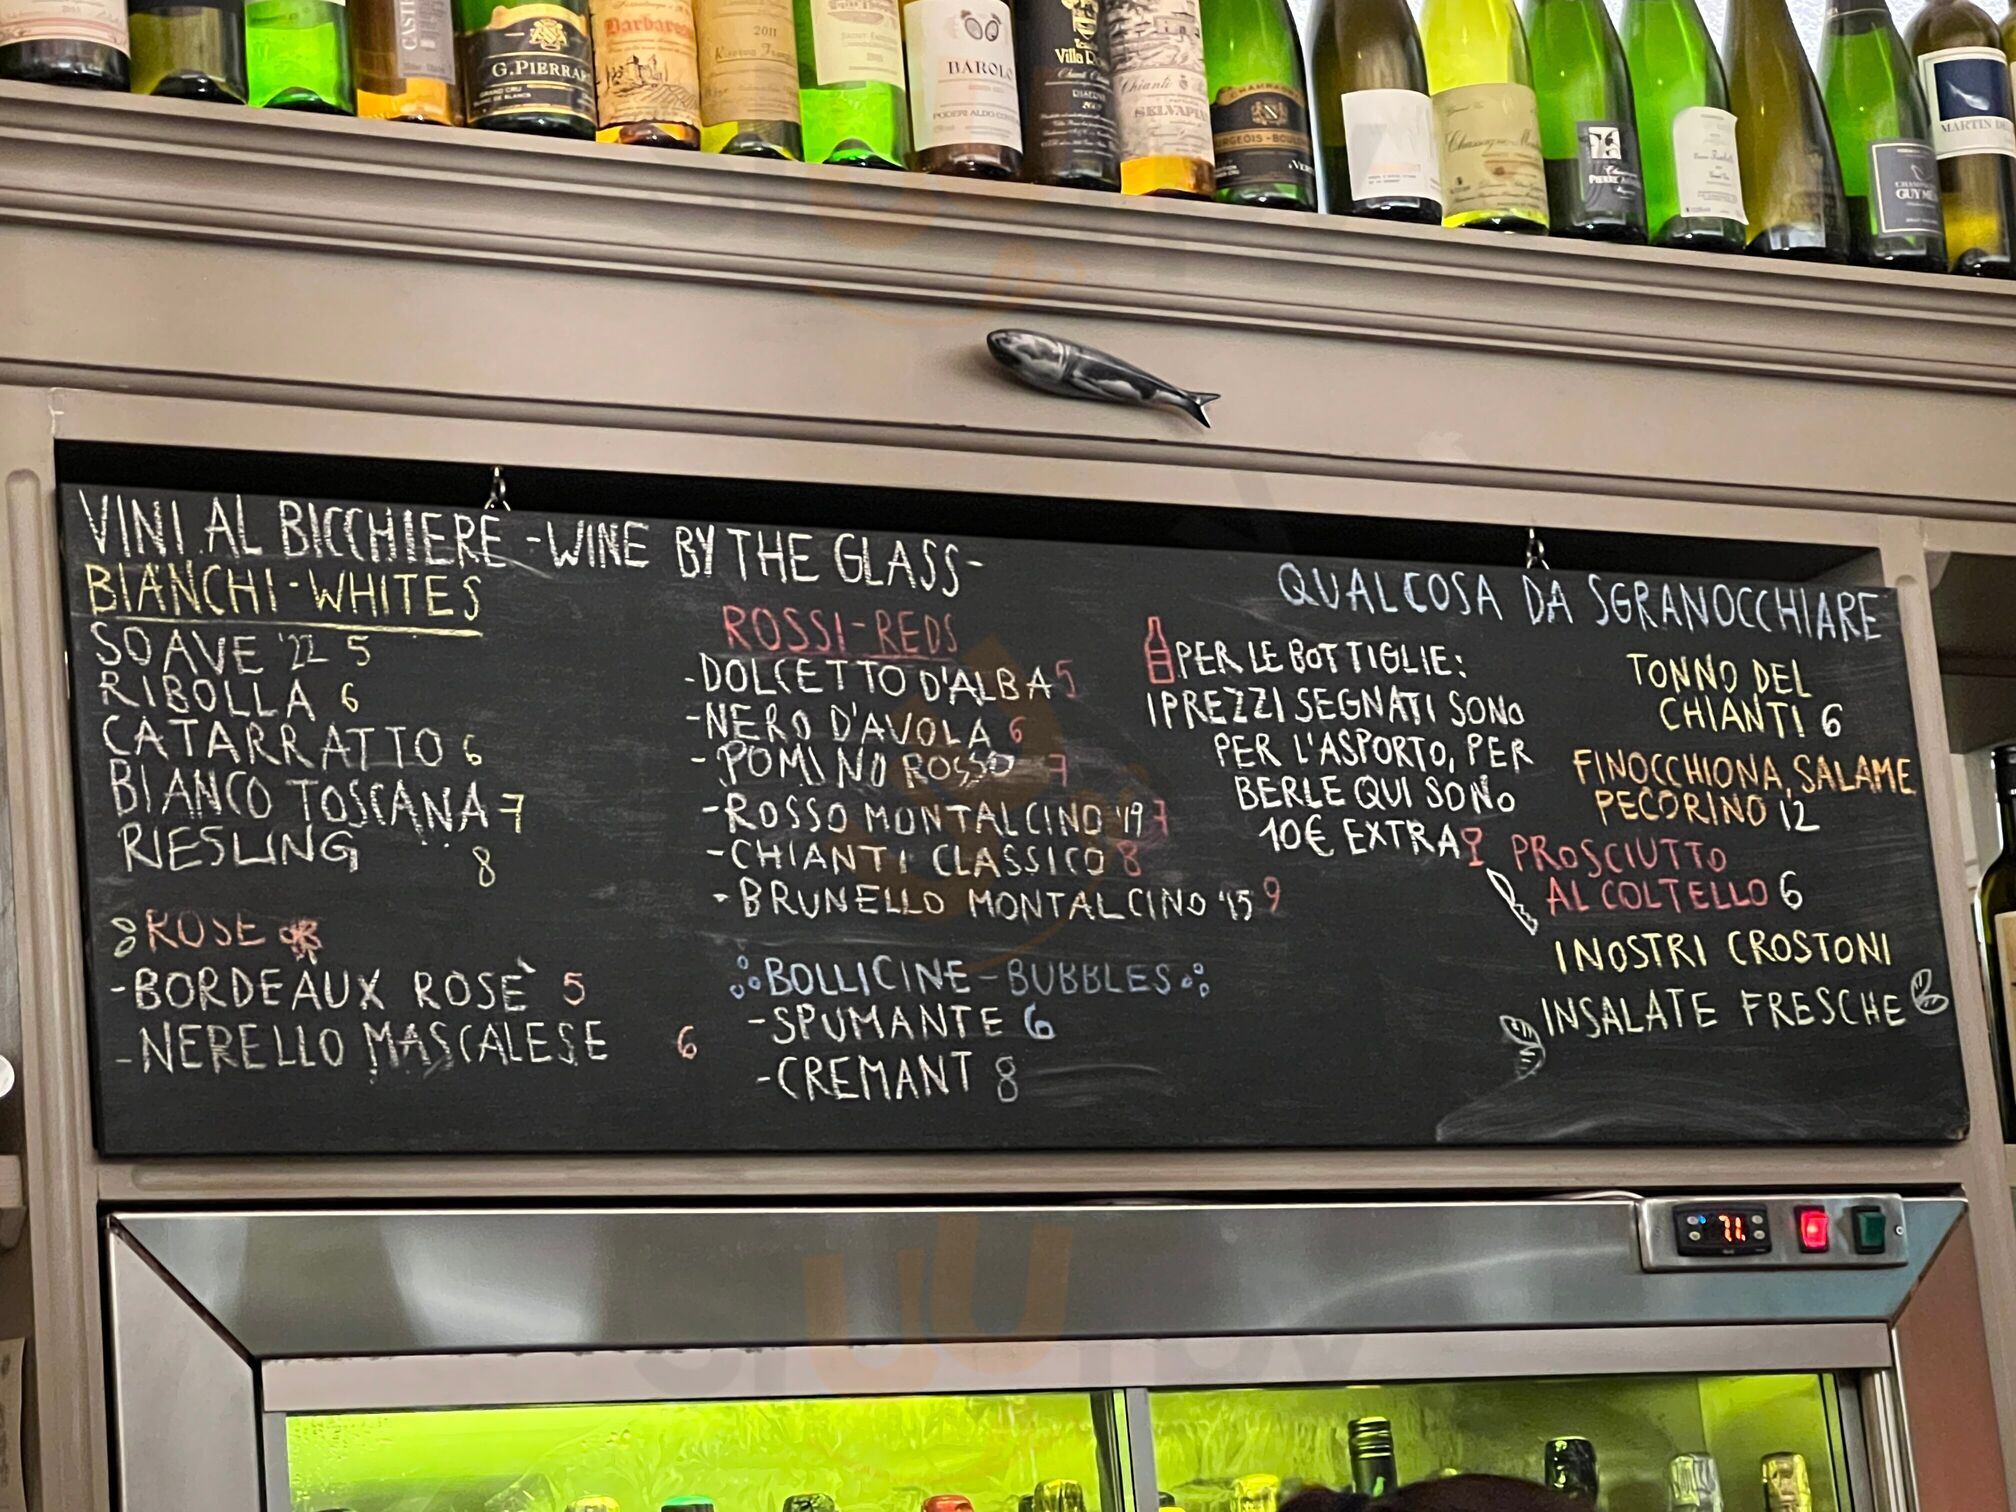 G.PIERRAR
GRAND CRU
BLANC DE BLANCS
2011
BAROLO
PODERI ALDO
Villa
RISERVA
Chianti
SELVAPI
CHAMPAGNE
GUY
MARTIN
VINI AL BICCHIERE -WINE BY THE GLASS-
BIANCHI-WHITES
SOAVE '22 5
RIBOLLA 6
CATARRATTO 6
BIANCO TOSCANA 7
RIESLING 8
ROSE
-BORDEAUX ROSÈ 5
-NERELLO MASCALESE 6
ROSSI-REDS
-DOLCETTO D'ALBA 5
-NERO D'AVOLA 6
-POMINO ROSSO 7
-ROSSO MONTALCINO '19 7
-CHIANTI CLASSICO 8
-BRUNELLO MONTALCINO '15 9
BOLLICINE-BUBBLES
-SPUMANTE 6
-CREMANT 8
PER LE BOTTIGLIE:
I PREZZI SEGNATI SONO
PER L'ASPORTO, PER
BERLE QUI SONO
10€ EXTRA
QUALCOSA DA SGRANOCCHIARE
TONNO DEL
CHIANTI 6
FINOCCHIONA, SALAME
PECORINO 12
PROSCIUTTO
AL COLTELLO 6
I NOSTRI CROSTONI
INSALATE FRESCHE